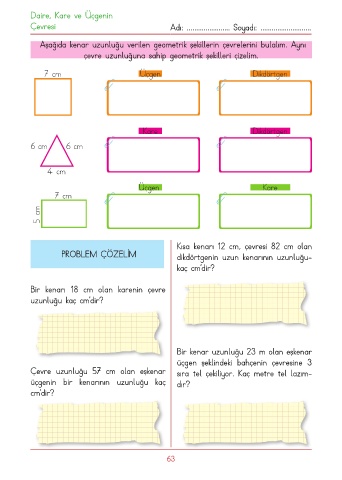 Daire, Kare ve Üçgenin
Çevresi
Adı: ..................... Soyadı: .........................
Aşağıda kenar uzunluğu verilen geometrik şekillerin çevrelerini bulalım. Aynı
çevre uzunluğuna sahip geometrik şekilleri çizelim.
7 cm
Üçgen
Dikdörtgen
Kare
Dikdörtgen
6 cm
6 cm
4 cm
Üçgen
Kare
7 cm
5 cm
PROBLEM ÇÖZELİM
Bir kenarı 18 cm olan karenin çevre
uzunluğu kaç cm'dir?
Çevre uzunluğu 57 cm olan eşkenar
üçgenin bir kenarının uzunluğu kaç
cm'dir?
Kısa kenarı 12 cm, çevresi 82 cm olan
dikdörtgenin uzun kenarının uzunluğu-
kaç cm'dir?
Bir kenar uzunluğu 23 m olan eşkenar
üçgen şeklindeki bahçenin çevresine 3
sıra tel çekiliyor. Kaç metre tel lazım-
dır?
63